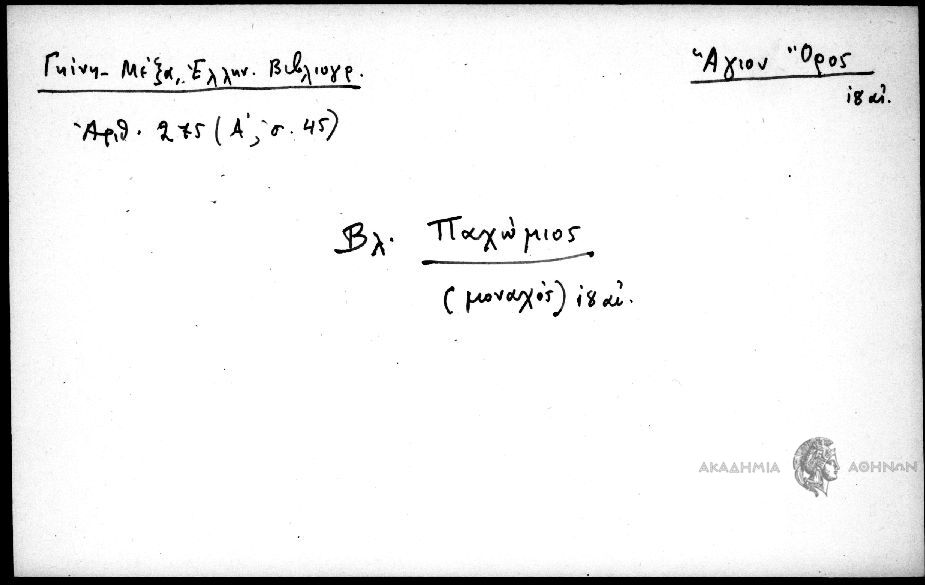 Γκίνη - Μέξα, Ἑλλην. Βιβλιογρ.
Ἀριθ. 275 (Α΄, σ. 45)
Ἅγιον Ὄρος
ι8 αἰ.
Βλ. Παχώμιος
(μοναχός) ι8 αἰ.
ΑΚΑΔΗΜΙΑ ΑΘΗΝΩΝ